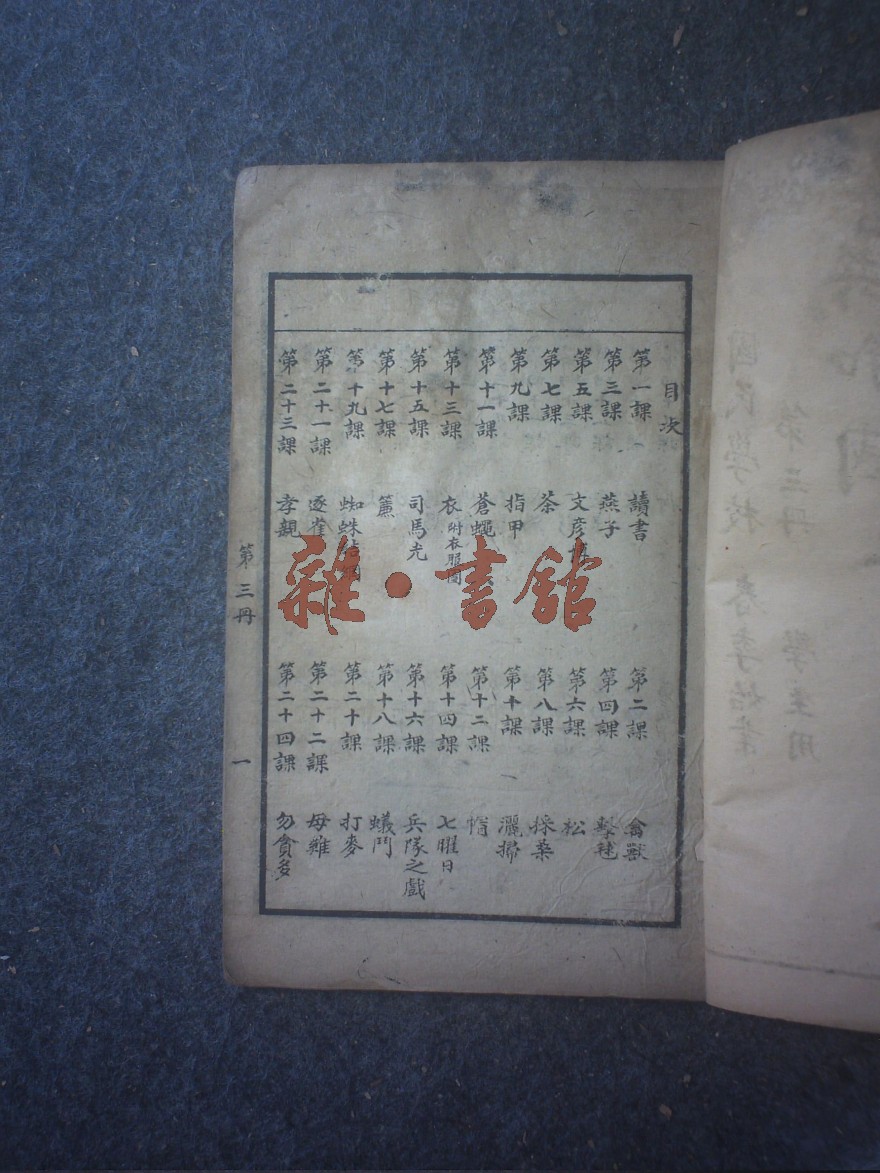 目次
第一課 讀書 第二課 禽獸
第三課 燕子 第四課 擊毬
第五課 文彥 第六課 松
第七課 茶 第八課 採茶
第九課 指甲 第十課 灑掃
第十一課 蒼蠅 第十二課 惰
第十三課 衣 附衣服圖 第十四課 七曜日
第十五課 司馬光 第十六課 兵隊之戲
第十七課 簾 第十八課 蟻鬥
第十九課 蜘蛛 第二十課 打麥
第二十一課 逐雀 第二十二課 母雞
第二十三課 孝親 第二十四課 勿貪多
第三冊
一
雜·書館
國民學校 春季始業
第三冊 學生用
國